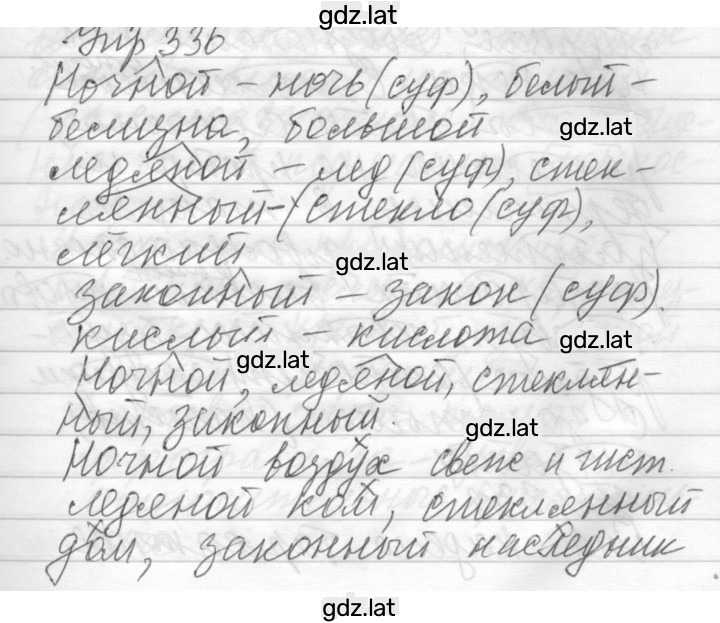 gdz.lat
Упр 336
Ночной – ночь (суф), белый –
белизна, большой gdz.lat
ледяной – лед (суф), стек-
лянный – (стекло (суф),
лёгкий gdz.lat
законный – закон (суф).
кислый – кислота gdz.lat
gdz.lat
Ночной, ледяной, стеклян-
ный, законный. gdz.lat
Ночной воздух свеж и чист.
ледяной ком, стеклянный
дом, законный наследник
gdz.lat